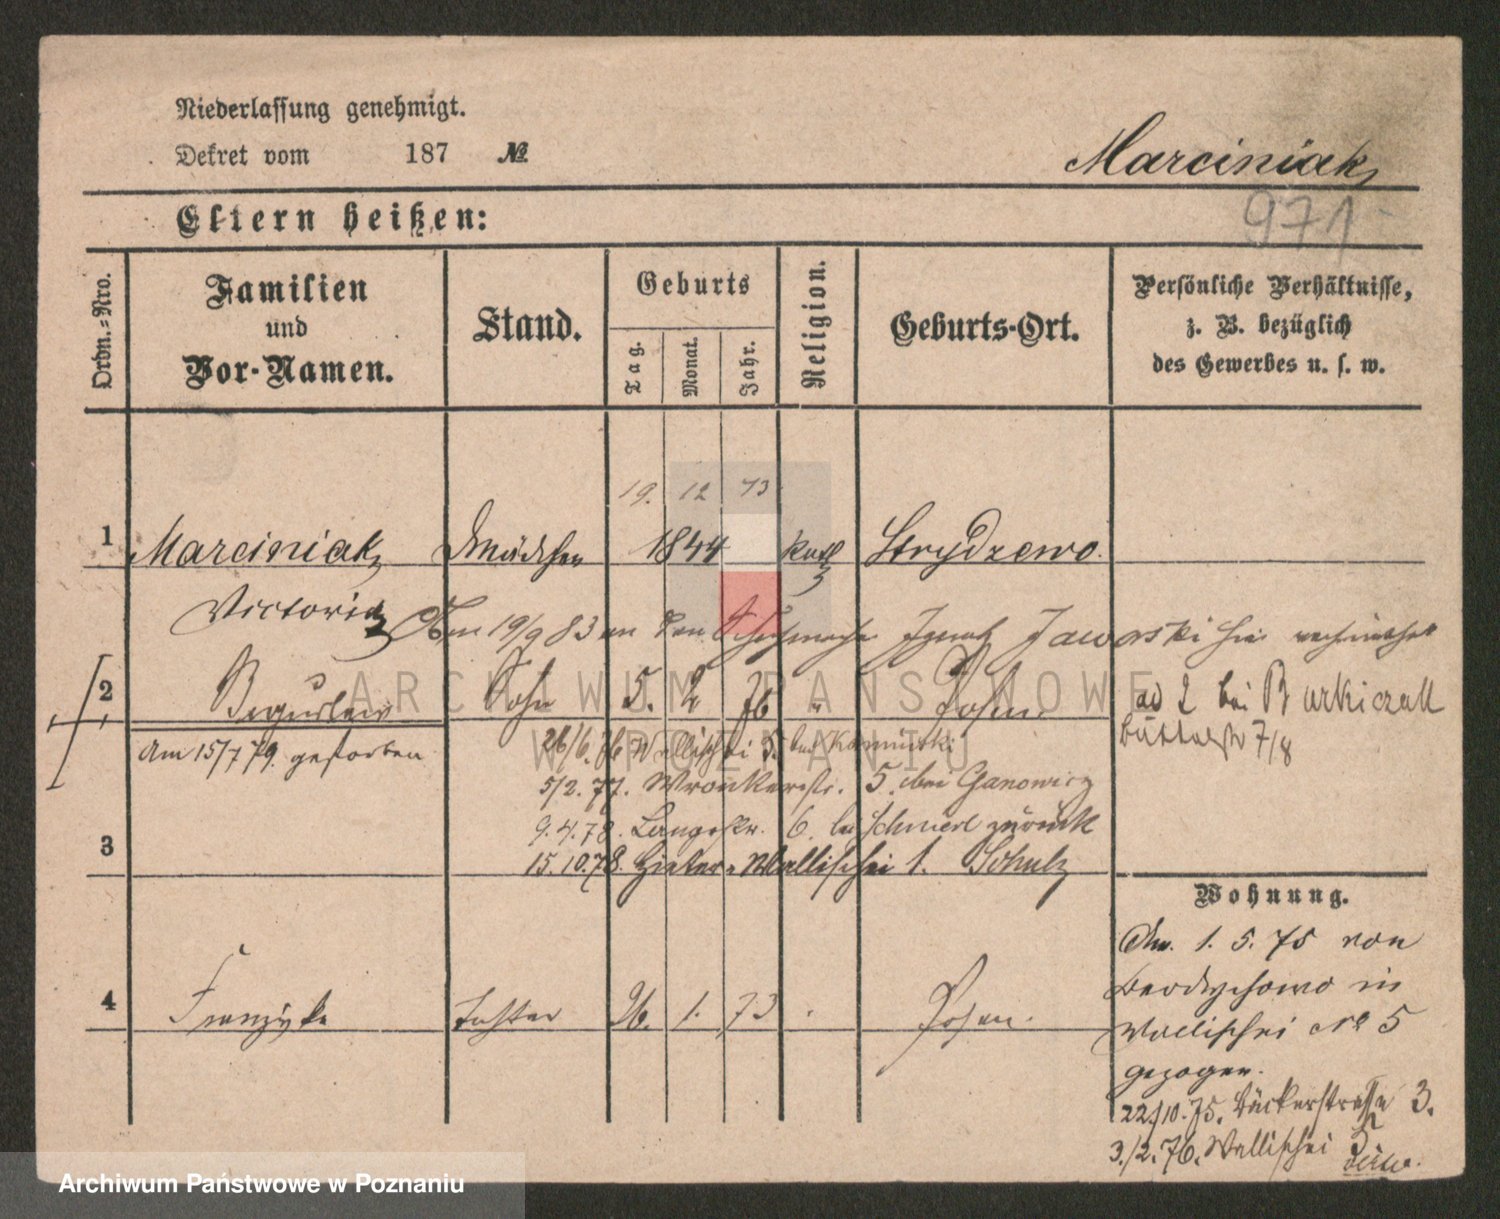 Niederlassung genehmigt.
Dekret vom 187 №
Marciniak
971
Eltern heißen:
Ordn.-Nro.
Familien
und
Vor-Namen.
Stand.
Geburts
Tag.
Monat.
Jahr.
Religion.
Geburts-Ort.
Persönliche Verhältnisse,
z. B. bezüglich
des Gewerbes u. s. w.
19. 12 73
1 Marciniak Mädchen 1844 kath Strydzewo.
Victoria
Am 19/9 83 an den Ignatz Jaworski hier
2 Sohn 5. 2 76 " Posen. ad 2 bei Burkiczak
Büttelstr 7/8
Am 15/7 79. gestorben
26/6. 76 Wallischei 5. bei Kaminski
5/2. 77. Wronkerstr. 5. bei Ganowicz
9. 4. 78. Langestr. 6. bei zurück
3
15. 10. 78. Hinter-Wallischei 1. Schulz
Wohnung.
4 Franziska Tochter 26. 1. 73 Posen.
Am. 1. 5. 75 von
Berdychowo in
Wallischei No 5
gezogen.
22/10. 75. Bäckerstrasse 3.
3./2. 76. Wallischei 5
ARCHIWUM PAŃSTWOWE
W POZNANIU
Archiwum Państwowe w Poznaniu